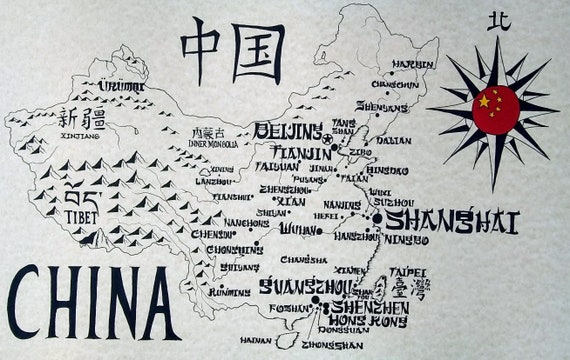 中国
北
HARBIN
CHANGCHUN
ÜRÜMQI
SHENYANG
新疆
XINJIANG
内蒙古
INNER MONGOLIA
BEIJING
TANG
SHAN
DALIAN
TIANJIN
ZIBO
XINING
LANZHOU
TAIYUAN
JINAN
QINGDAO
PUYANG
TAIAN
བོད
TIBET
TIANSHUI
ZHENGZHOU
XIAN
WUXI
SUZHOU
NANJING
SHANGHAI
SHIYAN
HEFEI
NANCHONG
CHENGDU
WUHAN
HANGZHOU
NINGBO
CHONGQING
CHANGSHA
GUIYANG
XIAMEN
TAIPEI
臺灣
CHINA
KUNMING
GUANGZHOU
FOSHAN
SHENZHEN
HONG KONG
DONGGUAN
HAINAN
ZHONGSHAN